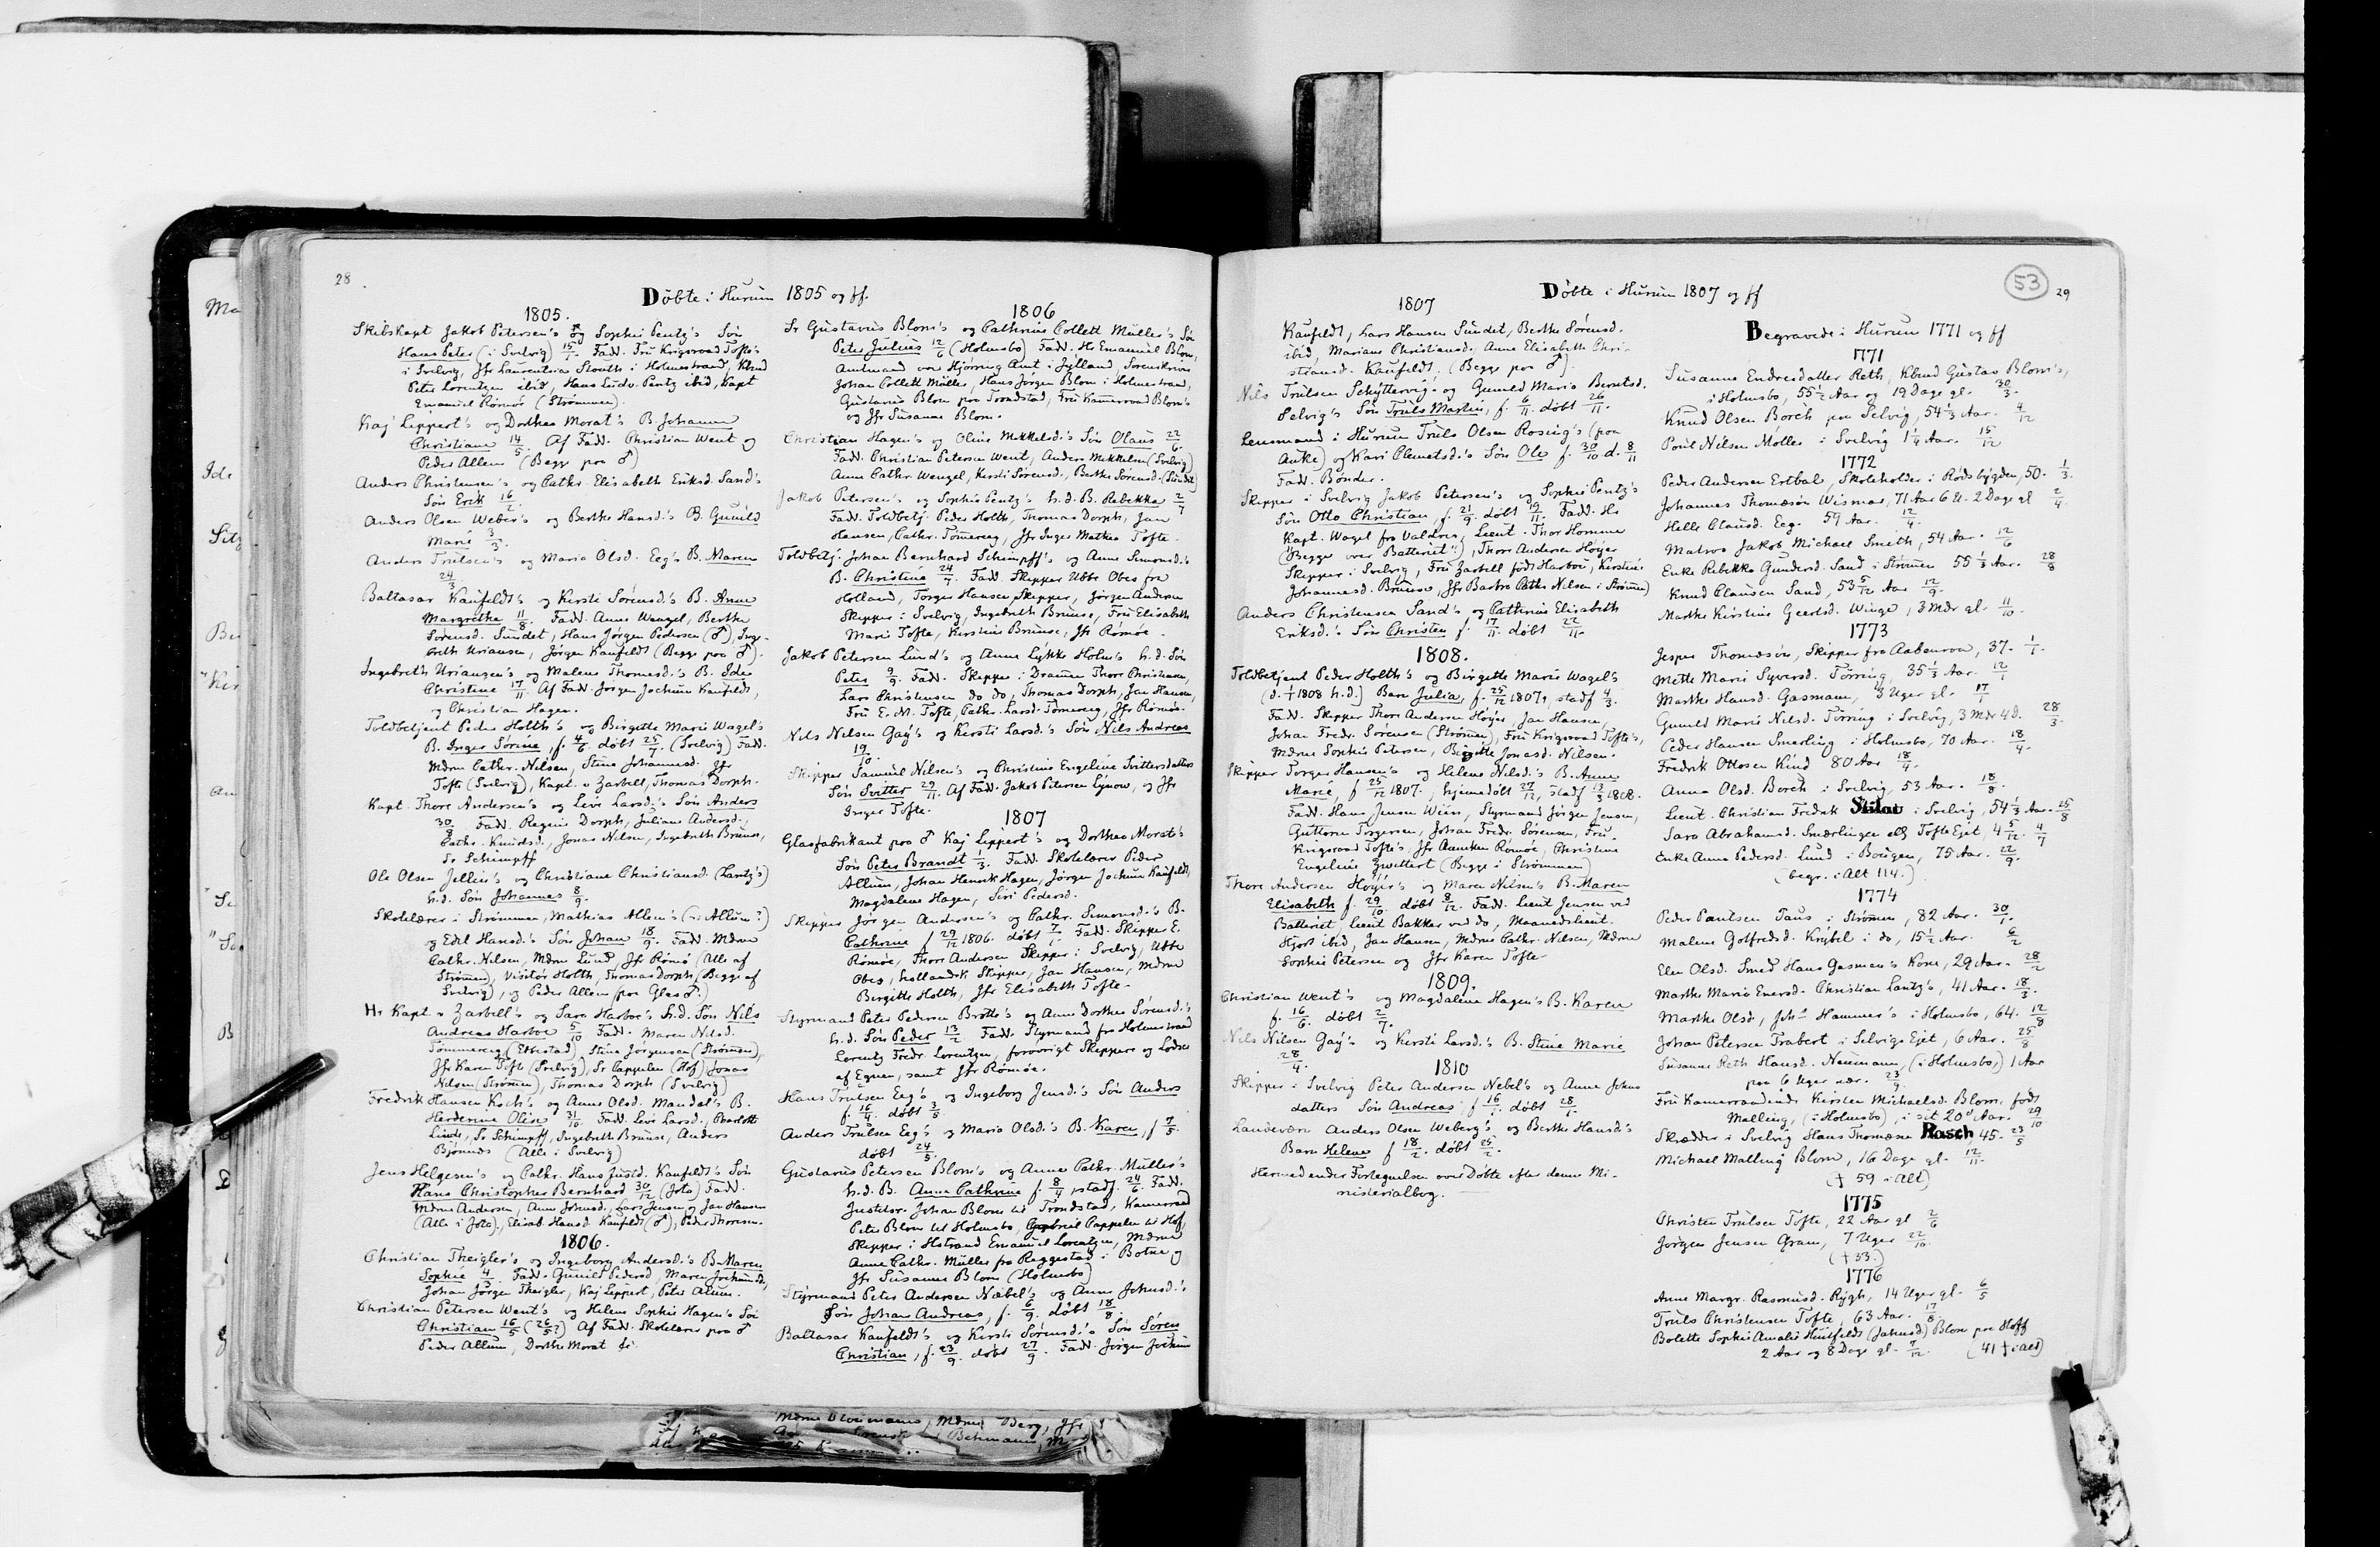 28
Döbte i Hurum 1805 og ff.
1805.
Skibskapt Jakob Petersen's og Sophie Pentz's Søn
Hans Peter (i Svelvig) 15/1. Fadd. Fru Krigsraad Tofte's
i Svelvig, Jfr Laurentzia Stouth i Holmestrand, Kbmd
Peter Lorentzen ibid, Hans Ludv. Pentz ibid, Kapt
Emanuel Römör (Strømmen).
Kaj Lippert's og Dorthea Morat's B. Johanne
Christiane 14/5. Af Fadd. Christian Went og
Peder Allum (Begge paa ♂)
Anders Christensen's og Cathr. Elisabeth Eriksd. Sand's
Søn Erik 16/2.
Anders Olsen Weber's og Berthe Hansd.'s B. Gunild
Marie 3/3.
Anders Trulsen's og Maria Olsd. Eeg's B. Maren
24/3.
Baltasar Kaufeldt's og Kersti Sørensd.'s B. Anne
Margrethe 11/8. Fadd. Anne Wengel, Berthe
Sørensd. Sundet, Hans Jørgen Pedersen (♂), Inge-
breth Uriansen, Jørgen Kaufeldt (Begge paa ♂).
Ingebreth Uriansen's og Malene Thomesd.'s B. Ide
Christine 17/11. Af Fadd. Jørgen Jochum Kaufeldt,
og Christian Hagen.
Toldbetjent Peder Holth's og Birgitte Marie Wagel's
B. Inger Sörine, f. 4/6. döbt 25/7. (Svelvig) Fadd.
Mdme Cathr. Nilsen, Stine Johannesd. Jfr
Tofte (Svelvig), Kapt. v Zarbell, Thomas Dorph.
Kapt. Thore Andersen's og Leve Larsd.'s Søn Anders
30/8. Fadd. Regine Dorph, Juliane Andersd.,
Cathr. Knudsd., Jonas Nilsen, Ingebreth Brunse,
Sr Schimpff
Ole Olsen Jellen's og Christiane Christiansd. (Lantz's)
h.d. Søn Johannes 8/9.
Skolelærer i Strømmen, Mathias Allum's (~: Allum?)
og Edel Hansd.'s Søn Johan 18/9. Fadd. Mdme
Cathr. Nilsen, Mdme Lund, Jfr Römö (Alle af
Strömmen), Visitör Holth, Thomas Dorph (Begge af
Svelvig), og Peder Allum (paa Glas ♂.)
Hr Kapt. v Zarbell's og Sara Harboe's h.d. Søn Nils
Andreas Harboe 5/10. Fadd. Maren Nilsd.
Tömmeraas (Ebbestad), Stine Jørgensen (Strømmen),
Jfr Karen Tofte (Svelvig), Sr Cappelen (Hof) Jonas
Nilsen (Strømmen), Thomas Dorph (Svelvig)
Fredrik Hansen Koch's og Anne Olsd. Mandal's B.
Herdenine Oline 31/10. Fadd. Leve Larsd., Charlotte
Linde, Sr Schimpff, Ingebreth Brunse, Anders
Björnnes (Alle i Svelvig)
Jens Helgesen's og Cathr. Hans Justd. Kaufeldt's Søn
Hans Christopher Bernhard 30/12 (Jota) Fadd.
Mdme Andersen, Anne Johnsd., Lars Jensen og Jan Hansen
(Alle i Jota), Elisab. Hansd. Kaufeldt (♂), Peder Thoresen.
1806.
Christian Theigler's og Ingeborg Andersd.'s B. Maren
Sophie 4/4. Fadd. Gunild Pedersd, Maren Jochumsd,
Johan Jørgen Theigler, Kaj Lippert, Peter Allum.
Christian Petersen Went's og Helene Sophie Hagen's Søn
Christian 16/5 (26/5?) Af Fadd. Skolelærer paa ♂
Peder Allum, Dorthe Morat &c.
1806
Sr Gustavus Blom's og Cathrine Collett Müller's Søn
Peter Julius 12/6 (Holmsbo) Fadd. Hr Emanuel Blom,
Amtmand over Hjørring Amt i Jylland, Sorenskriver
Johan Collett Müller, Hans Jørgen Blom i Holmestrand,
Gustavus Blom paa Trondstad, Fru Kammerraad Blom's
og Jfr Susanne Blom.
Christian Hagen's og Oline Mikkelsd.'s Søn Olaus 22/6.
Fadd. Christian Petersen Went, Anders Mikkelsen (Svelvig)
Anne Cathr. Wengel, Kersti Sørensd., Berthe Sørensd. (Sundet)
Jakob Petersen's og Sophie Pentz's h.d. B. Rebekka 2/7
Fadd. Toldbetj. Peder Holth, Thomas Dorph, Jan
Hansen, Cathr. Tömeraas, Jfr Inger Mathea Tofte.
Toldbetj. Johan Bernhard Schimpff's og Anne Simonsd.'s
B. Christine 24/7. Fadd. Skipper Ubbe Obes fra
Holland, Torger Hansen, Skipper, Jørgen Andersen
Skipper i Svelvig, Ingebreth Brunse, Fru Elisabeth
Marie Tofte, Kirstine Brunse, Jfr Römöe.
Jakob Petersen Lund's og Anne Lykke Holm's h.d. Søn
Peter 9/9. Fadd. Skipper i Dramen Thore Christensen,
Lars Christensen do do, Thomas Dorph, Jan Hansen,
Fru E. M. Tofte, Cathr. Larsd. Tömeraas, Jfr Römöe.
Nils Nilsen Gaÿ's og Kersti Larsd.'s Søn Nils Andreas
19/10.
Skipper Samuel Nilsen's og Christine Engeline Svittersdatters
Søn Svitter 29/11. Af Fadd. Jakob Petersen Lynow, og Jfr
Inger Tofte.
1807
Glasfabrikant paa ♂ Kaj Lippert's og Dorthea Morat's
Søn Peter Brandt 1/3. Fadd. Skolelærer Peder
Allum, Johan Henrik Hagen, Jørgen Jochum Kaufeldt,
Magdalene Hagen, Siri Pedersd.
Skipper Jørgen Andersen's og Cathr. Simonsd.'s B.
Cathrine f 29/12 1806. döbt 7/1. Fadd. Skipper E.
Römöe, Thore Andersen Skipper i Svelvig, Ubbe
Obes, hollandsk Skipper, Jan Hansen, Mdme
Birgitte Holth, Jfr Elisabeth Tofte.
Styrmand Peter Pedersen Brøtte's og Anne Dorthea Sørensd.'s
h.d. Søn Peder 13/2 Fadd. Styrmand fra Holmestrand
Lorentz Fredr. Lorentzen, forøvrigt Skippere og Lodser
af Egnen, samt Jfr Römöe.
Hans Trulsen Eeg's og Ingeborg Jensd.'s Søn Anders
f. 16/4. döbt 3/5.
Anders Trulsen Eeg's og Maria Olsd.'s B. Karen, f 7/5.
döbt 24/5.
Gustavus Petersen Blom's og Anne Cathr. Müller's
h.d. B. Anne Cathrine f. 8/4, stadf. 24/6. Fadd.
Justitsr. Johan Blom til Trondstad, Kammerraad
Peter Blom til Holmsbo, Gabriel Cappelen til Hof,
Skipper i Hstrand Emanuel Lorentzen, Mdme
Anne Cathr. Müller fra Reggestad i Botne og
Jfr Susanne Blom (Holmsbo)
Styrmand Peter Andersen Næbel's og Anne Johnsd.'s
Søn Johan Andreas, f. 6/9. döbt 18/8.
Baltasar Kaufeldt's og Kersti Sørensd.'s Søn Sören
Christian, f. 23/9. döbt 27/9. Fadd. Jørgen Jochum
53
29
Döbte i Hurum 1807 og ff
1807
Kaufeldt, Lars Hansen Sundet, Berthe Sørensd.
ibid, Mariane Christiansd., Anne Elisabeth Chri-
stiansd. Kaufeldt. (Begge paa ♂).
Nils Trulsen Schÿttervig's og Gunild Maria Berntsd.
Selvig's Søn Truls Martin, f. 6/11. döbt 26/11.
Lensmand i Hurum Truls Olsen Rosing's (paa
Auke) og Kari Clemetsd.'s Søn Ole f. 30/10 d. 8/11
Fadd. Bønder.
Skipper i Svelvig Jakob Petersen's og Sophie Pentz's
Søn Otto Christian f. 21/9 döbt 19/11. Fadd. Hr
Kapt. Wagel fra Valdres, Lieut. Thor Homme
(Begge "over Batteriet"), Thore Andersen Høÿer
Skipper i Svelvig, Fru Zarbell född Harboe, Kirstine
Johannesd. Brunse, Jfr Barbro Cathr. Nilsen i Strømmen)
Anders Christensen Sand's og Cathrine Elisabeth
Eriksd.'s Søn Christen f. 17/11. döbt 22/11.
1808.
Toldbetjent Peder Holth's og Birgitte Marie Wagel's
(d. 1/1 1808 h.d.) Barn Julia, f. 25/12 1807, stadf 4/3.
Fadd. Skipper Thore Andersen Höÿer, Jan Hansen,
Johan Fredr. Sörensen (Strømmen), Fru Krigsraad Tofte's,
Mdme Sophie Petersen, Birgitte Jonasd. Nilsen.
Skipper Torger Hansen's og Helene Nilsd.'s B. Anne
Marie, f 25/12 1807., hjemmedöbt 27/12, stadf 13/3 1808.
Fadd. Hans Jensen Wiin, Styrmand Jørgen Jensen,
Guttorm Torgersen, Johan Fredr. Sörensen, Fru
Krigsraad Tofte's, Jfr Anneken Römöe, Christine
Engeline Zwittert (Begge i Strømmen)
Thore Andersen Høyer's og Maren Nilsen's B. Maren
Elisabeth f. 29/10. döbt 8/12. Fadd. Lieut Jensen ved
Batteriet, Lieut Bakker ved do, Maanedslieut.
Hjort ibid, Jan Hansen, Mdme Cathr. Nilsen, Mdme
Sophie Petersen og Jfr Karen Tofte.
1809.
Christian Went's og Magdalene Hagen's B. Karen
f. 16/6. döbt 2/7.
Nils Nilsen Gaÿ's og Kersti Larsd.'s B. Stine Marie
28/4.
1810
Skipper i Svelvig Peter Andersen Nebel's og Anne Johns
datters Søn Andreas f 16/1. döbt 28/1.
Landeværn Anders Olsen Weberg's og Berthe Hansd.'s
Barn Helene f 18/2. döbt 25/2.
Hermed ender Fortegnelsen over Døbte efter denne Mi-
nisterialbog.
Begravede i Hurum 1771 og ff
1771
Susanne Endresdatter Reth, Kbmd Gustav Blom's,
i Holmsbo, 55 1/2 Aar og 19 Dage gl. 30/3.
Knud Olsen Borch paa Selvig, 54 1/3 Aar. 4/12
Poul Nilsen Møller i Svelvig 1 1/4 Aar. 15/12
1772
Peder Andersen Ertbøl, Skoleholder i Rødsbygden, 50. 1/3.
Johannes Thomæsön Wismar, 71 Aar 6 U. 2 Dage gl 2/4.
Helle Clausd. Eeg. 59 Aar. 12/4.
Matros Jakob Michael Smith, 54 Aar. 12/6
Enke Rebekka Gundersd. Sand i Strømmen 55 1/3 Aar. 28/8
Knud Clausen Sand, 53 5/12 Aar 12/9.
Marthe Kirstine Geertsd. Winge, 3 Mdr gl. 11/10.
1773
Jesper Thomæsön, Skipper fra Aabenraa, 37. 1/1.
Mette Marie Syversd. Törring, 35 1/3 Aar. 12/1
Marthe Hansd. Gasmann, 3 Uger gl. 17/1
Gunild Marie Nilsd. Törring i Svelvig, 3 Mdr 4 d. 28/3.
Peder Hansen Smerling i Holmsbo, 70 Aar. 18/4.
Fredrik Ottosen Kind 80 Aar 18/4.
Anna Olsd. Borch i Svelvig, 53 Aar. 18/8.
Lieut. Christian Fredrik Stilau i Svelvig, 54 1/3 Aar. 15/8
Sara Abrahamsd. Smærlingen ell Tofte Ejet, 4 5/12. 4/7
Enke Anna Pedersd. Lund i Bougen, 75 Aar. 22/9.
(begr. i Alt 114.)
1774
Peder Paulsen Taus i Strømmen, 82 Aar. 30/1.
Malene Gotfredsd. Knybel i do, 15 1/2 Aar. 6/2
Elen Olsd. Smed Hans Gasman's Kone, 29 Aar. 28/2
Marthe Maria Enersd. Christian Lantz's, 41 Aar. 18/3.
Marthe Olsd, Johs Hammer's i Holmsbo, 64. 12/8
Johan Petersen Trabert i Selvigs Ejet, 6 Aar. 25/8
Susanne Reth Hansd. Neumann, (i Holmsbo,) 1 Aar
paa 6 Uger nær. 23/9
Fru Kammerraadinde Kirsten Michaelsd. Blom, född
Malling, (i Holmsbo), i sit 20de Aar. 29/10
Skrædder i Svelvig Hans Thomæsen Rasch 45. 23/5
Michael Malling Blom, 16 Dage gl. 12/11.
(† 59 i Alt)
1775
Christen Trulsen Tofte, 22 Aar gl 2/6
Jørgen Jensen Gram, 7 Uger 22/10.
(† 33.)
1776
Anne Margr. Rasmusd. Rÿgh, 14 Uger gl. 6/5
Truls Christensen Tofte, 63 Aar. 17/8
Bolette Sophie Amalie Huitfeldt (Johnsd) Blom paa Hoff
2 Aar og 8 Dage gl. 7/12. (41 † i alt)